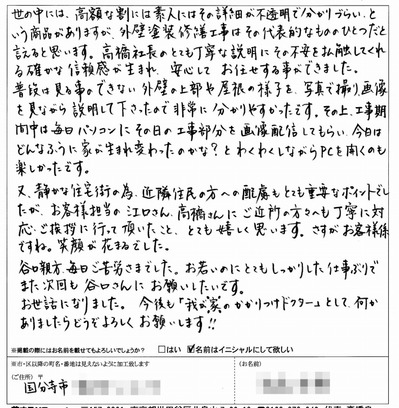 世の中には、高額な割には素人にはその詳細が不透明で分かりづらい、と
いう商品がありますが、外壁塗装修繕工事はその代表的なもののひとつだと
言えると思います。高橋社長のとても丁寧な説明にその不安を払触してくれ
る確かな信頼感が生まれ、安心して お任せする事ができました。
普段は見る事のできない外壁の上部や屋根の様子を、写真で撮り、画像
を見ながら説明して下さったので非常に分かりやすかったです。その上、工事期
間中は毎日パソコンにその日の工事部分を画像配信してもらい、今日は
どんなふうに家が生まれ変わったのかな？とわくわくしながらPCを開くのも
楽しかったです。
又、静かな住宅街の為、近隣住民の方への配慮もとても重要なポイントでし
たが、お客様担当の江口さん、高橋さんにご近所の方々へも丁寧に対
応・ご挨拶に行って頂いたこと、とても嬉しく思います。さすがお客様係
ですね。笑顔が花まるでした。
谷口親方、毎日ご苦労さまでした。お若いのにとてもしっかりした仕事ぶりで
また次回も谷口さんにお願いしたいです。
お世話になりました。今後も「我が家のかかりつけドクター」として、何か
ありましたらどうぞよろしくお願いします!!
※掲載の際にはお名前を載せてもよろしいでしょうか？ □はい ☑名前はイニシャルにして欲しい
※市・区以降の町名・番地は見えないように加工致します
（ご住所）〒
国分寺市
（お名前）